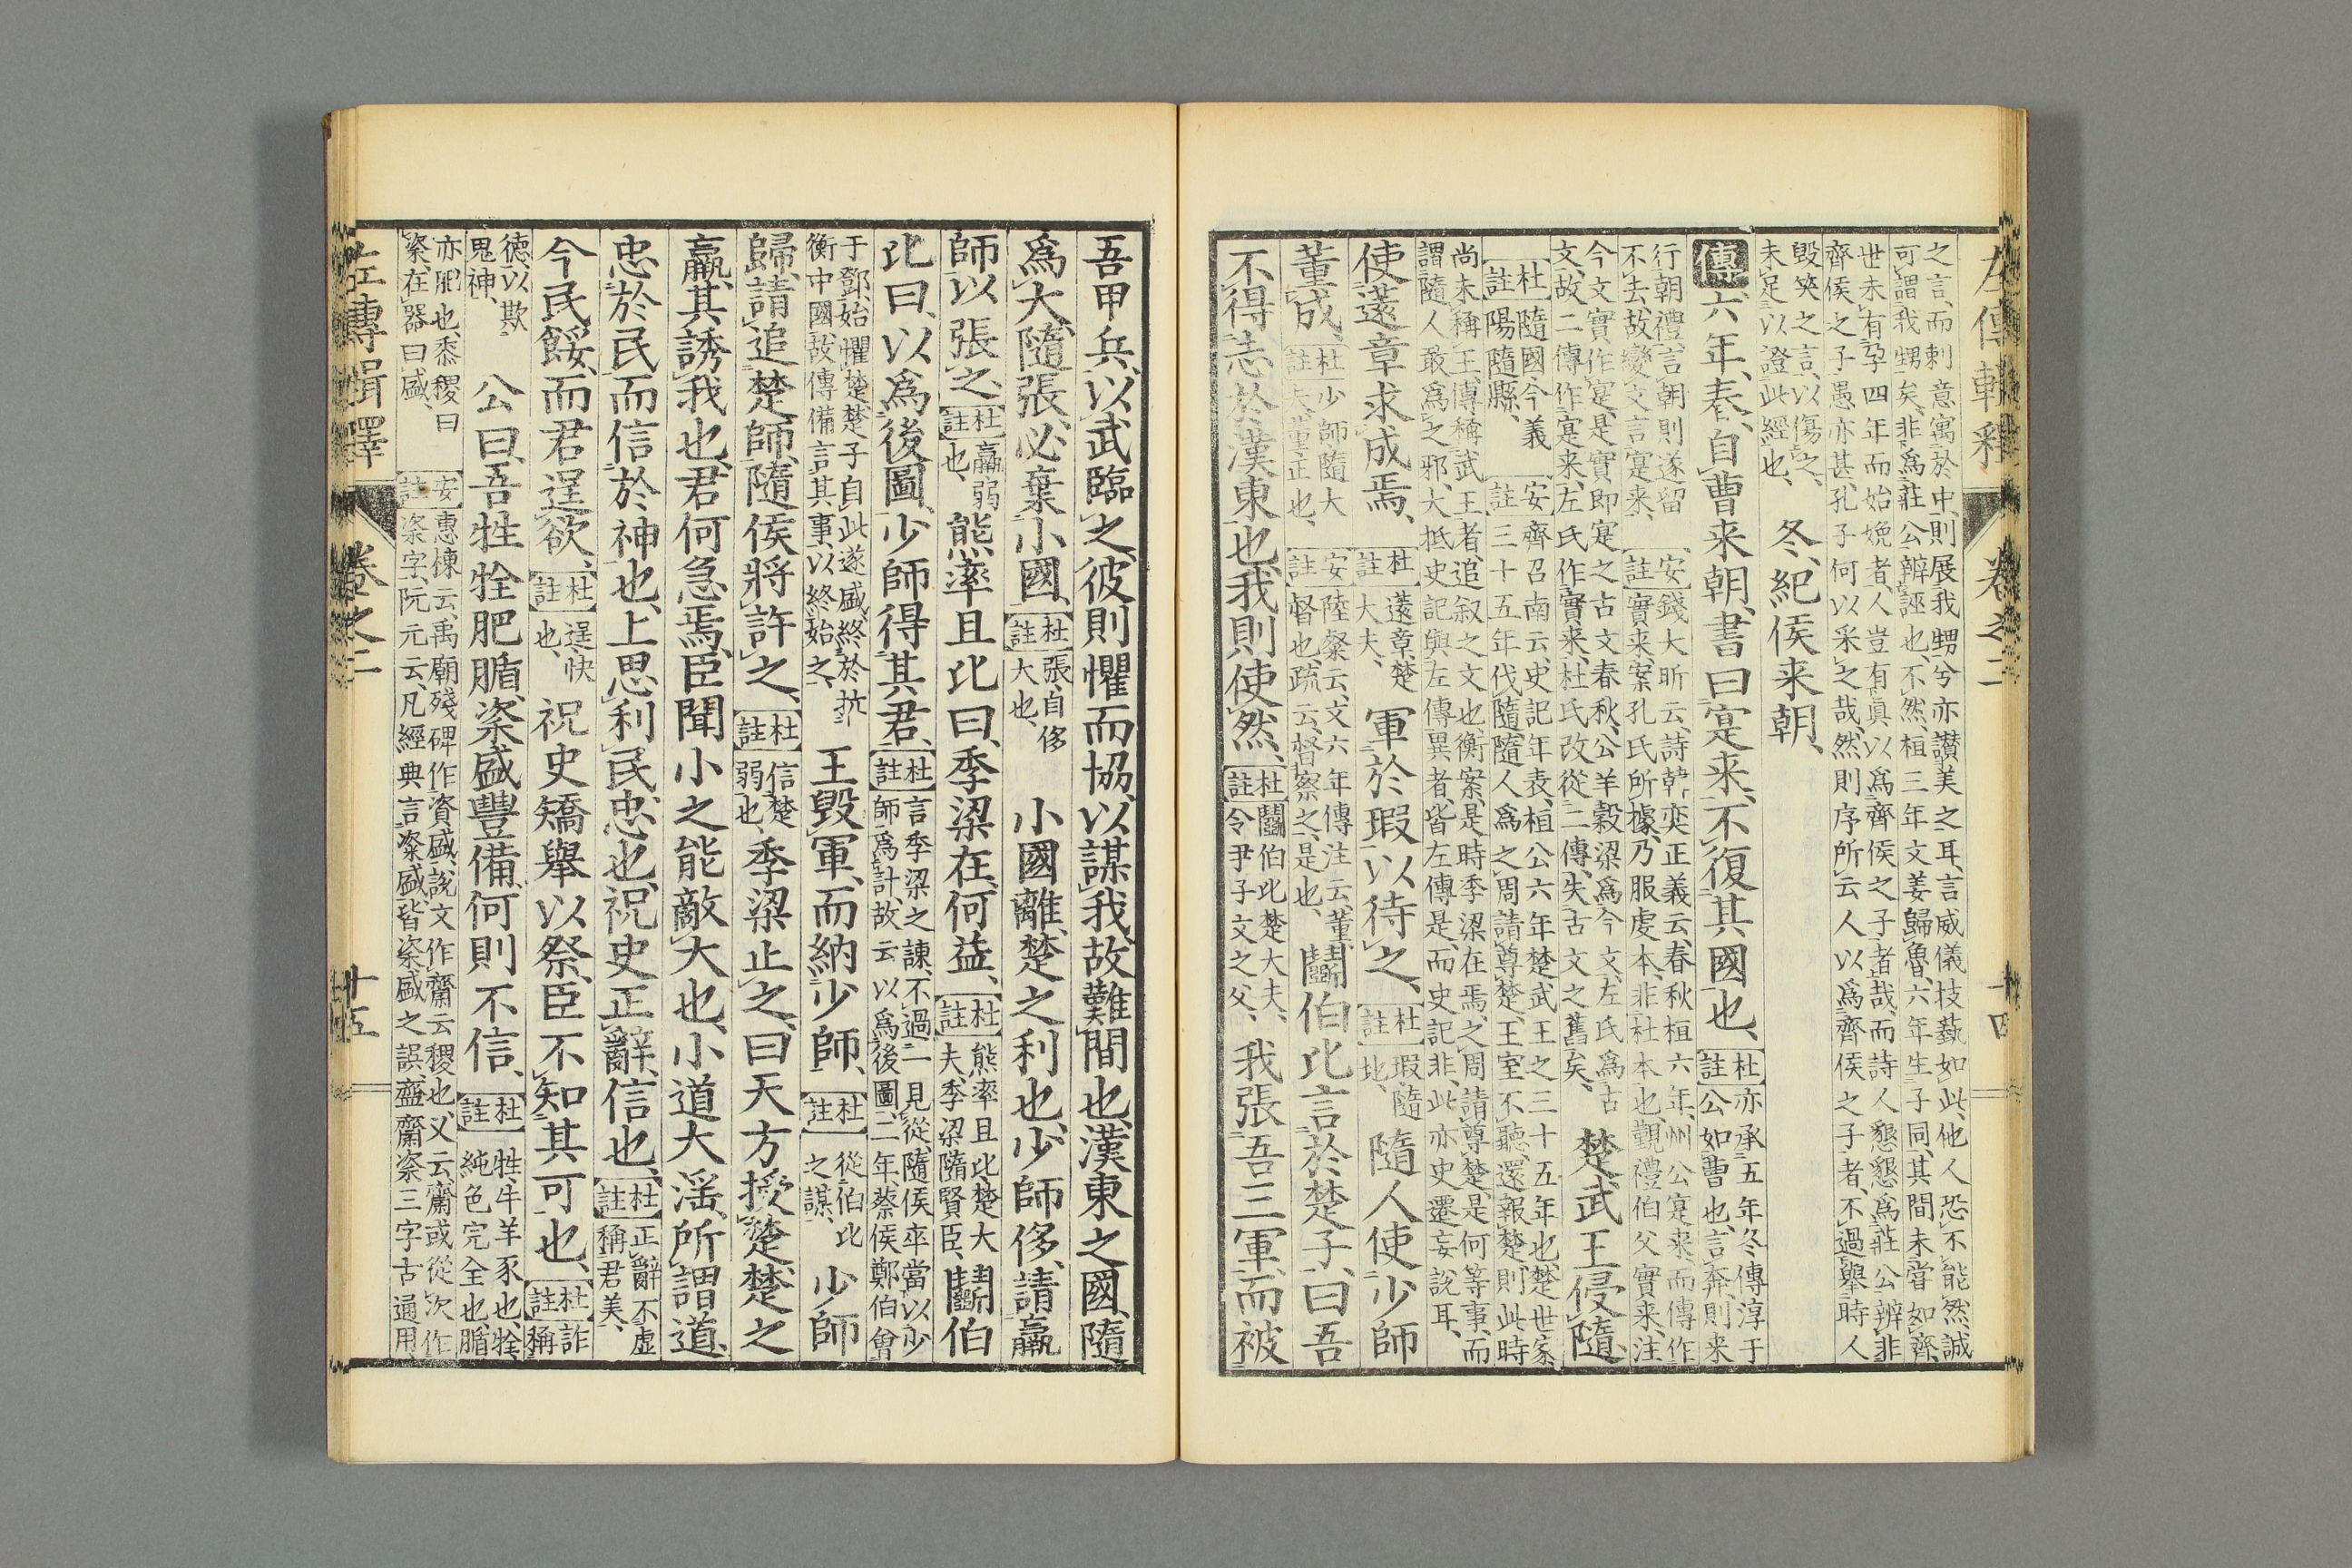 左傳輯釋
卷之二
十四
之言、而刺意寓於中、則展我甥兮亦讚美之耳、言威儀技藝如此、他人恐不能然、誠
可謂我甥矣、非爲莊公辨誣也、不然、桓三年文姜歸魯、六年生子同、其間未嘗如齊、
世未有孕四年而始娩者、人豈有眞以爲齊侯之子者哉、而詩人懇懇爲莊公辨非
齊侯之子、愚亦甚、孔子何以采之哉、然則序所云人以爲齊侯之子者、不過擧時人
毀笑之言、以傷之、
未足以證此經也、
冬、紀侯来朝、
傳、六年、春、自曹来朝、書曰寔来、不復其國也、
杜註
亦承五年冬傳淳于
公如曹也、言奔、則来
行朝禮、言朝則遂留
不去、故變文言寔来、
安註
錢大昕云、詩韓奕正義云、春秋桓六年、州公寔来、而傳作
實来、案孔氏所據、乃服虔本、非杜本也、觀禮伯父實来、注
今文實作寔、是實即寔之古文、春秋、公羊穀梁爲今文、左氏爲古
文、故二傳作寔来、左氏作實来、杜氏改從二傳、失古文之舊矣、
楚武王侵隨、
杜註
隨國今義
陽隨縣、
安註
齊召南云、史記年表、桓公六年、楚武王之三十五年也、楚世家、
三十五年、伐隨、隨人爲之周、請尊楚、王室不聽、還報楚、則此時
尚未稱王、傳稱武王者、追叙之文也、衡案、是時季梁在焉、之周請尊楚、是何等事、而
謂隨人敢爲之邪、大抵史記與左傳異者、皆左傳是、而史記非、此亦史遷妄說耳、
使薳章求成焉、
杜註
薳章、楚
大夫、
軍於瑕以待之、
杜註
瑕、隨
地、
隨人使少師
董成、
杜註
少師隨大
夫、董正也、
安註
陸粲云、文六年傳注云、董、
督也、疏云、督察之、是也、
鬬伯比言於楚子、曰吾
不得志於漢東也、我則使然、
杜註
鬬伯比楚大夫、
令尹子文之父、
我張吾三軍、而被
吾甲兵、以武臨之、彼則懼而協、以謀我、故難間也、漢東之國、隨
爲大、隨張、必棄小國、
杜註
張、自侈
大也、
小國離、楚之利也、少師侈、請羸
師以張之、
杜註
羸弱
也、
熊率且比曰、季梁在、何益、
杜註
熊率且比、楚大
夫、季梁隨賢臣、
鬬伯
比曰、以爲後圖、少師得其君、
杜註
言季梁之諫、不過一見從、隨侯卒當以少
師爲計、故云以爲後圖、二年、蔡侯鄭伯會
于鄧、始懼楚、楚子自此遂盛、終於抗
衡中國、故傳備言其事、以終始之、
王毀軍、而納少師、
杜註
從伯比
之謀、
少師
歸、請追楚師、隨侯將許之、
杜註
信楚
弱也、
季梁止之、曰天方授楚、楚之
羸、其誘我也、君何急焉、臣聞小之能敵大也、小道大淫、所謂道、
忠於民、而信於神也、上思利民、忠也、祝史正辭、信也、
杜註
正辭不虚
稱君美、
今民餒、而君逞欲、
杜註
逞、快
也、
祝史矯擧以祭、臣不知其可也、
杜註
詐稱
德以欺
鬼神、
公曰、吾牲牷肥腯、粢盛豐備、何則不信、
杜註
牲、牛羊豕也、牷、
純色完全也、腯
亦肥也、黍稷曰
粢、在器曰盛、
安註
惠棟云、禹廟殘碑作資盛、說文作齋、云稷也、又云、齋或從次作
粢字、阮元云、凡經典言粢盛、皆粢盛之誤、齍齋粢三字古通用、
左傳輯釋
卷之二
十五